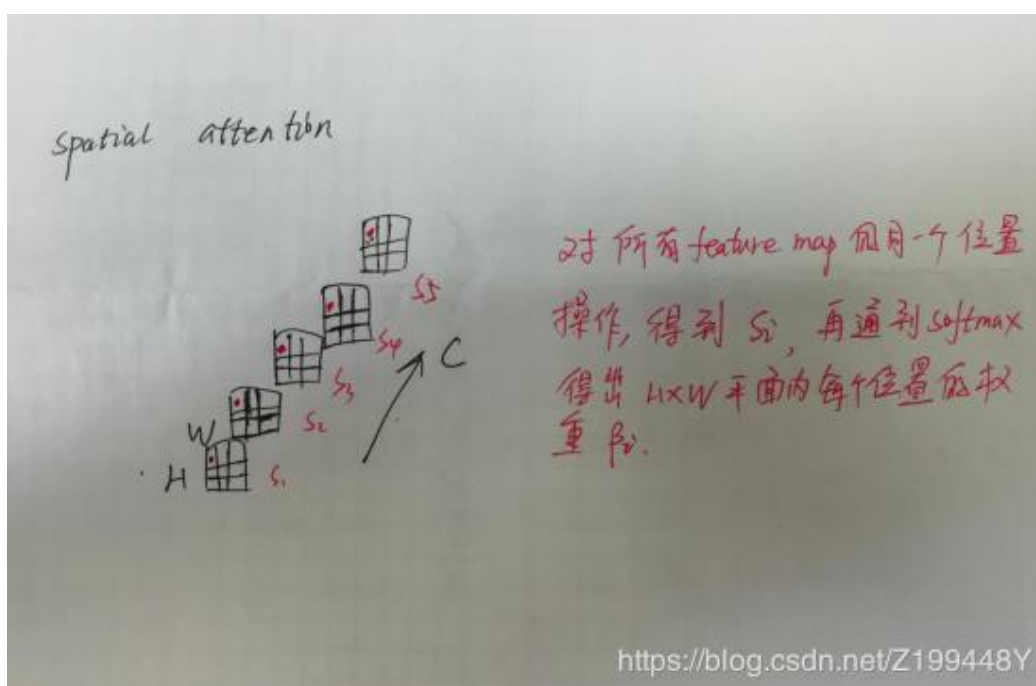 spatial attention
S5
S4
C
S3
S2
W
H
S1
对所有feature map 同一个位置
操作, 得到 Si, 再通到softmax
得出 H×W平面内每个位置的权
重 βi.
https://blog.csdn.net/Z199448Y